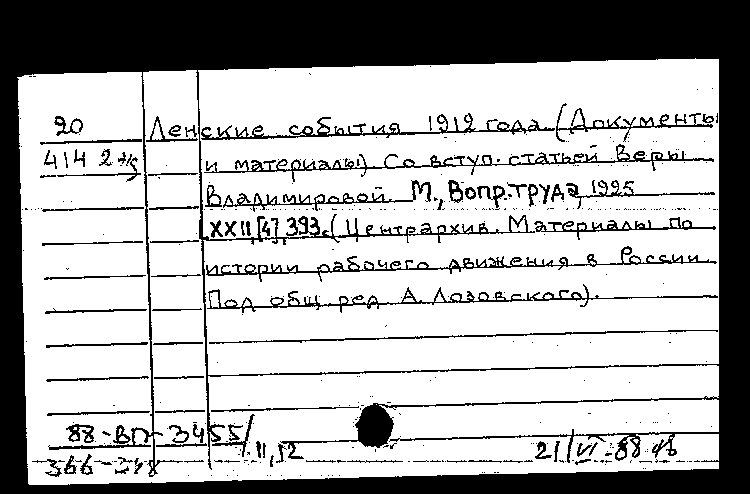 20 Ленские события 1912 года. (Документы
414 2ж и материалы) Со вступ. статьей Веры
Владимировой. М., Вопр. труда, 1925
XXII,[4],393. (Центрархив. Материалы по
истории рабочего движения в России
Под общ ред А. Лозовского).
88-ВП-3455/
11,52 21/VI-88
366-348